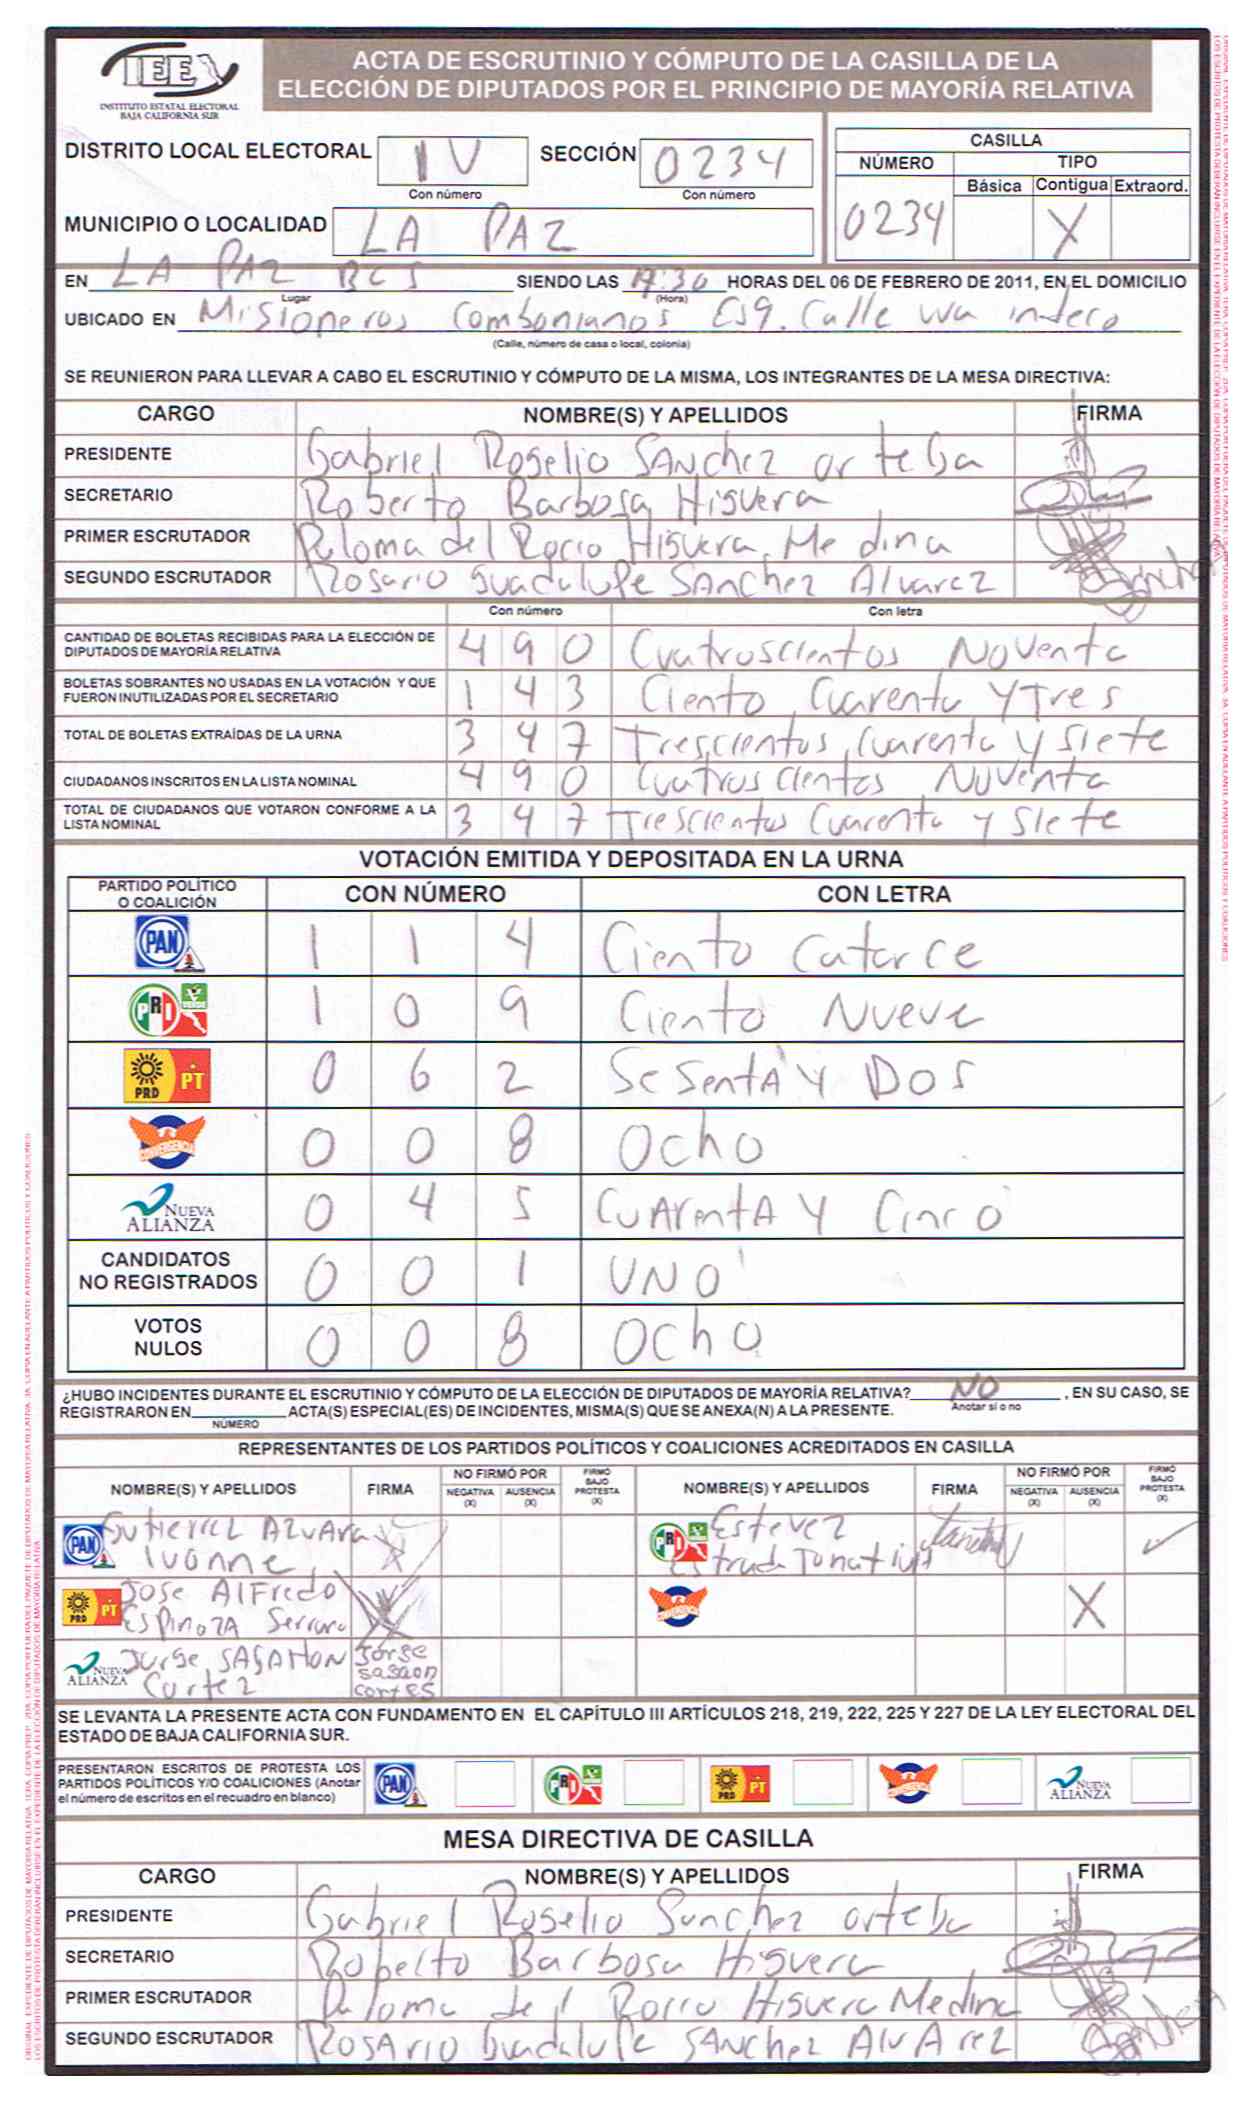 IEE
INSTITUTO ESTATAL ELECTORAL
BAJA CALIFORNIA SUR
ACTA DE ESCRUTINIO Y CÓMPUTO DE LA CASILLA DE LA
ELECCIÓN DE DIPUTADOS POR EL PRINCIPIO DE MAYORÍA RELATIVA
DISTRITO LOCAL ELECTORAL IV SECCIÓN 0234
Con número Con número
MUNICIPIO O LOCALIDAD LA PAZ
CASILLA
NÚMERO TIPO
Básica Contigua Extraord.
0234 X
EN LA PAZ BCS SIENDO LAS 19:30 HORAS DEL 06 DE FEBRERO DE 2011, EN EL DOMICILIO
Lugar (Hora)
UBICADO EN Misioneros Combonianos Esq. Calle
(Calle, número de casa o local, colonia)
SE REUNIERON PARA LLEVAR A CABO EL ESCRUTINIO Y CÓMPUTO DE LA MISMA, LOS INTEGRANTES DE LA MESA DIRECTIVA:
CARGO NOMBRE(S) Y APELLIDOS FIRMA
PRESIDENTE Gabriel Rogelio SANchez
SECRETARIO Roberto Barbosa Higuera
PRIMER ESCRUTADOR Paloma del Rocio Higuera Medina
SEGUNDO ESCRUTADOR Rosario Guadalupe SANchez Alvarez
Con número Con letra
CANTIDAD DE BOLETAS RECIBIDAS PARA LA ELECCIÓN DE
DIPUTADOS DE MAYORÍA RELATIVA 4 9 0 Cuatroscientos Noventa
BOLETAS SOBRANTES NO USADAS EN LA VOTACIÓN Y QUE
FUERON INUTILIZADAS POR EL SECRETARIO 1 4 3 Ciento Cuarenta Y Tres
TOTAL DE BOLETAS EXTRAÍDAS DE LA URNA 3 4 7 Trescientos Cuarenta y Siete
CIUDADANOS INSCRITOS EN LA LISTA NOMINAL 4 9 0 Cuatroscientos Noventa
TOTAL DE CIUDADANOS QUE VOTARON CONFORME A LA
LISTA NOMINAL 3 4 7 Trescientos Cuarenta y Siete
VOTACIÓN EMITIDA Y DEPOSITADA EN LA URNA
PARTIDO POLÍTICO
O COALICIÓN CON NÚMERO CON LETRA
PAN 1 1 4 Ciento Catorce
PRI VERDE 1 0 9 Ciento Nueve
PRD PT 0 6 2 SesentA Y DOS
CONVERGENCIA 0 0 8 Ocho
NUEVA
ALIANZA 0 4 5 CUArentA Y Cinco
CANDIDATOS
NO REGISTRADOS 0 0 1 UNO
VOTOS
NULOS 0 0 8 Ocho
¿HUBO INCIDENTES DURANTE EL ESCRUTINIO Y CÓMPUTO DE LA ELECCIÓN DE DIPUTADOS DE MAYORÍA RELATIVA? NO , EN SU CASO, SE
Anotar sí o no
REGISTRARON EN ACTA(S) ESPECIAL(ES) DE INCIDENTES, MISMA(S) QUE SE ANEXA(N) A LA PRESENTE.
NÚMERO
REPRESENTANTES DE LOS PARTIDOS POLÍTICOS Y COALICIONES ACREDITADOS EN CASILLA
NOMBRE(S) Y APELLIDOS FIRMA NO FIRMÓ POR NEGATIVA (X) AUSENCIA (X) FIRMÓ BAJO PROTESTA (X) NOMBRE(S) Y APELLIDOS FIRMA NO FIRMÓ POR NEGATIVA (X) AUSENCIA (X) FIRMÓ BAJO PROTESTA (X)
PAN Gutierrez
Ivonne
PRI Estevez
Estrada
PRD PT Jose Alfredo
EspinozA Serrano
CONVERGENCIA X
NUEVA ALIANZA Jorge SAGAHON
Cortez
Jorge
sagaon
cortes
SE LEVANTA LA PRESENTE ACTA CON FUNDAMENTO EN EL CAPÍTULO III ARTÍCULOS 218, 219, 222, 225 Y 227 DE LA LEY ELECTORAL DEL
ESTADO DE BAJA CALIFORNIA SUR.
PRESENTARON ESCRITOS DE PROTESTA LOS
PARTIDOS POLÍTICOS Y/O COALICIONES (Anotar
el número de escritos en el recuadro en blanco)
PAN PRI PRD PT CONVERGENCIA NUEVA ALIANZA
MESA DIRECTIVA DE CASILLA
CARGO NOMBRE(S) Y APELLIDOS FIRMA
PRESIDENTE Gabriel Rogelio Sanchez
SECRETARIO Roberto Barbosa Higuera
PRIMER ESCRUTADOR Paloma del Rocio Higuera Medina
SEGUNDO ESCRUTADOR ROSArio Guadalupe SANchez AlvArez